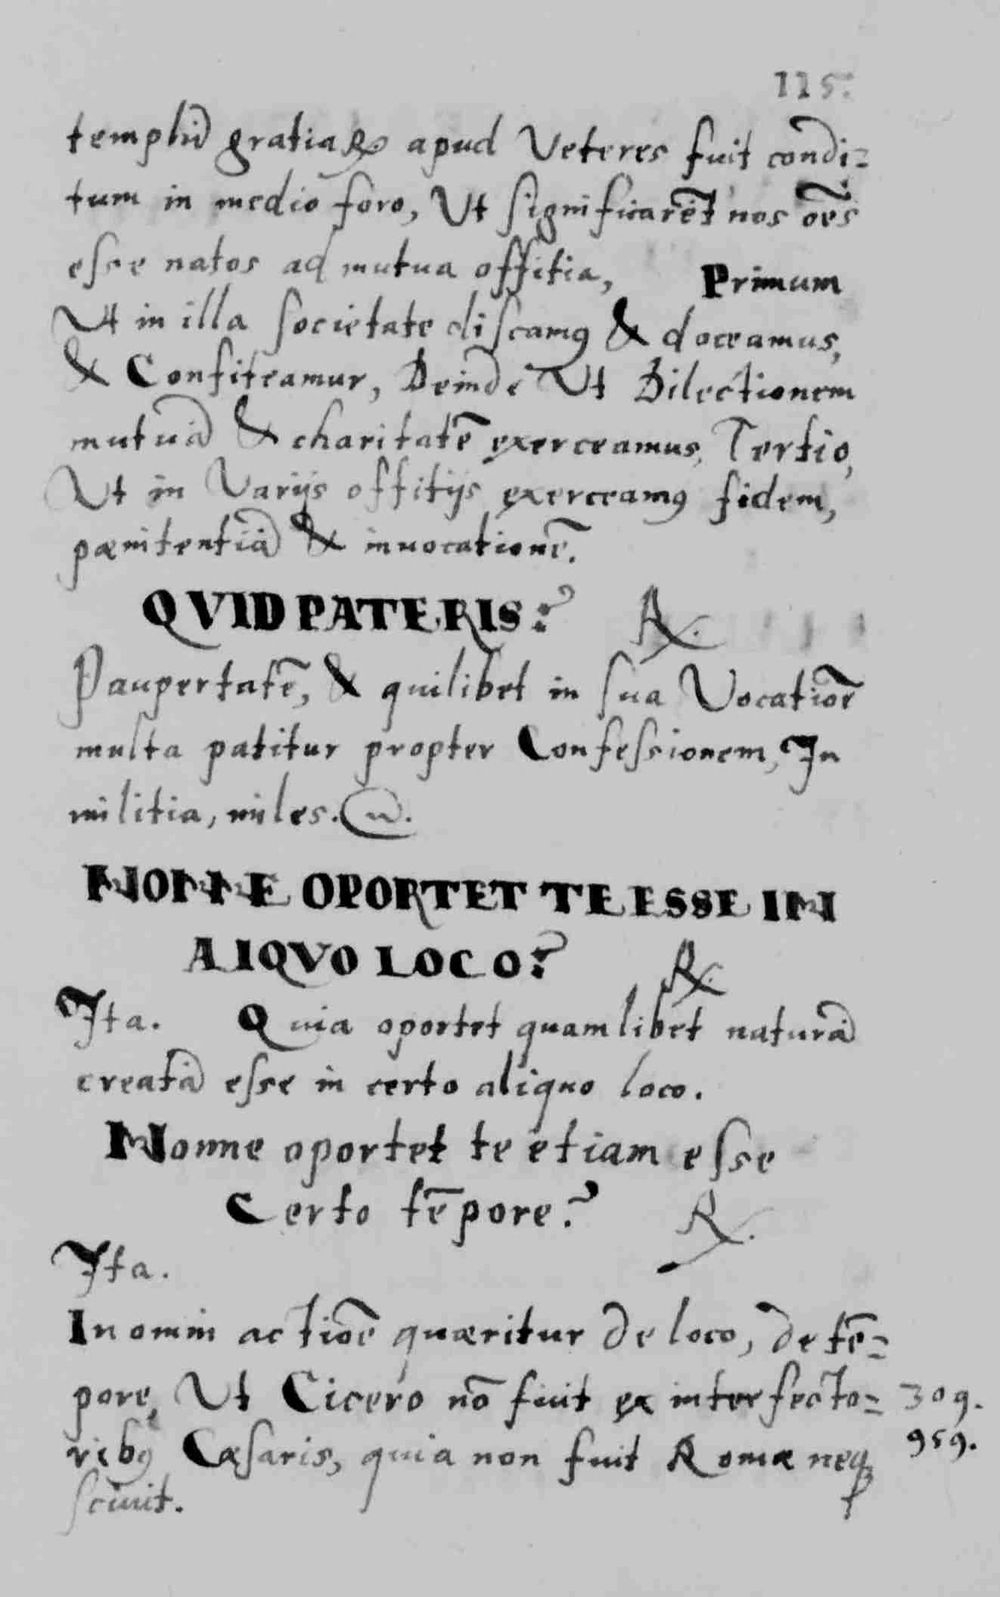 115.
templũ gratiaꝝ apud Veteres fuit condi=
tum in medio foro, Ut significarẽt nos oẽs
esse natos ad mutua offitia, Primum
Ut in illa societate discamꝰ & doceamus,
& Confiteamur, Deinde Ut Dilectionem
mutuã & charitatẽ exerceamus, Tertio,
Ut in Varijs offitijs exerceamꝰ fidem,
pænitentiã & inuocationẽ.
QVID PATERIS? ℞.
Paupertatẽ, & quilibet in sua Vocatiõe
multa patitur propter Confessionem, In
militia, miles.
NONNE OPORTET TE ESSE IN
AIQVO LOCO? ℞.
Ita. Quia oportet quamlibet naturã
creatã esse in certo aliquo loco.
Nonne oportet te etiam esse
Certo tẽpore? ℞.
Ita.
In omni actiõe quæritur de loco, de tẽ=
pore, Ut Cicero nõ fuit ex interfecto= 309.
ribꝰ Cæsaris, quia non fuit Romæ neqꝫ 959.
sciuit.